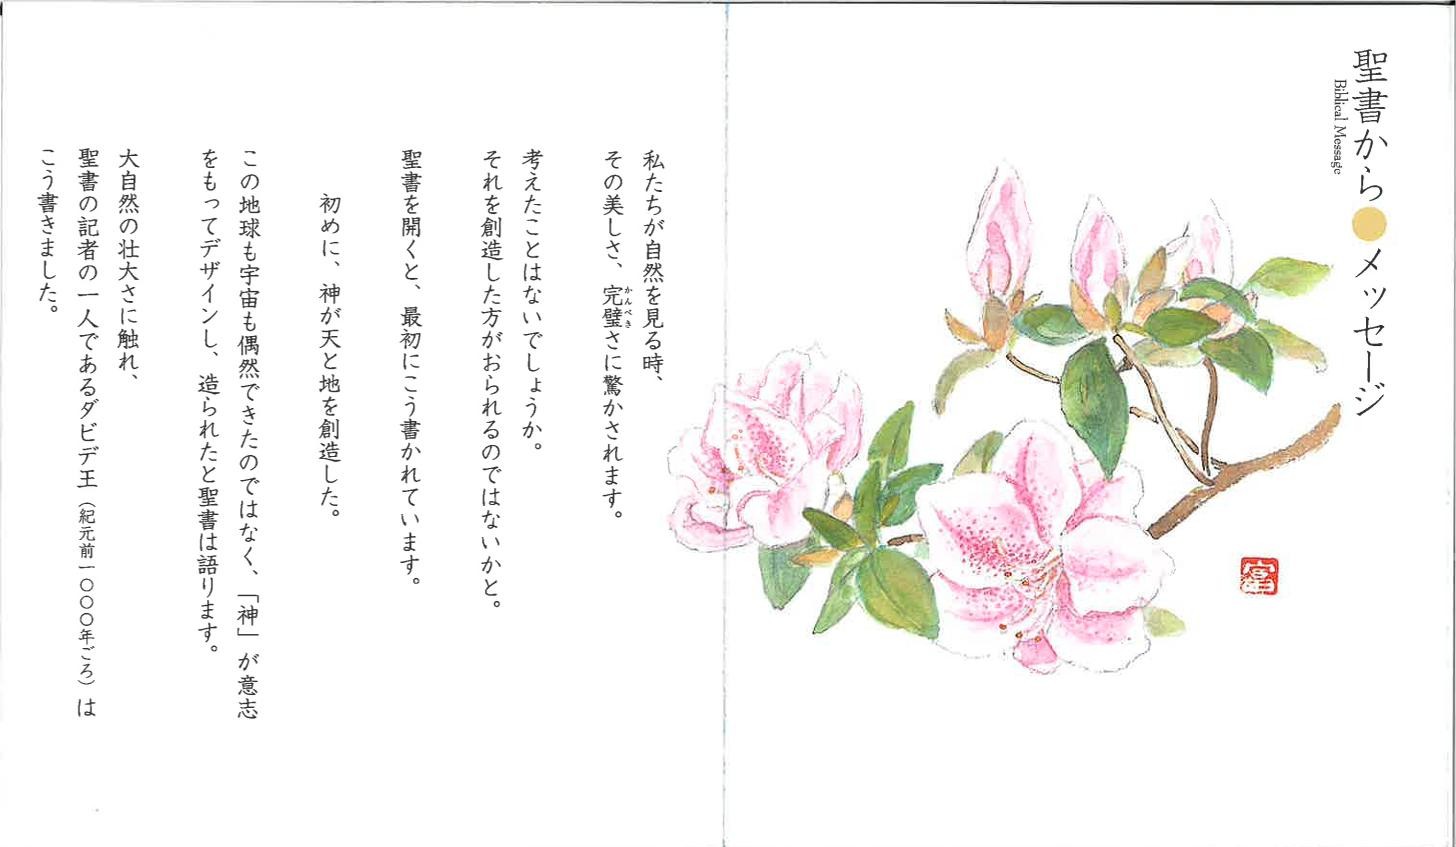 聖書から●メッセージ
Biblical Message
富
私たちが自然を見る時、
その美しさ、完璧さに驚かされます。
かんぺき
考えたことはないでしょうか。
それを創造した方がおられるのではないかと。
聖書を開くと、最初にこう書かれています。
初めに、神が天と地を創造した。
この地球も宇宙も偶然できたのではなく、「神」が意志
をもってデザインし、造られたと聖書は語ります。
大自然の壮大さに触れ、
聖書の記者の一人であるダビデ王（紀元前一〇〇〇年ごろ）は
こう書きました。